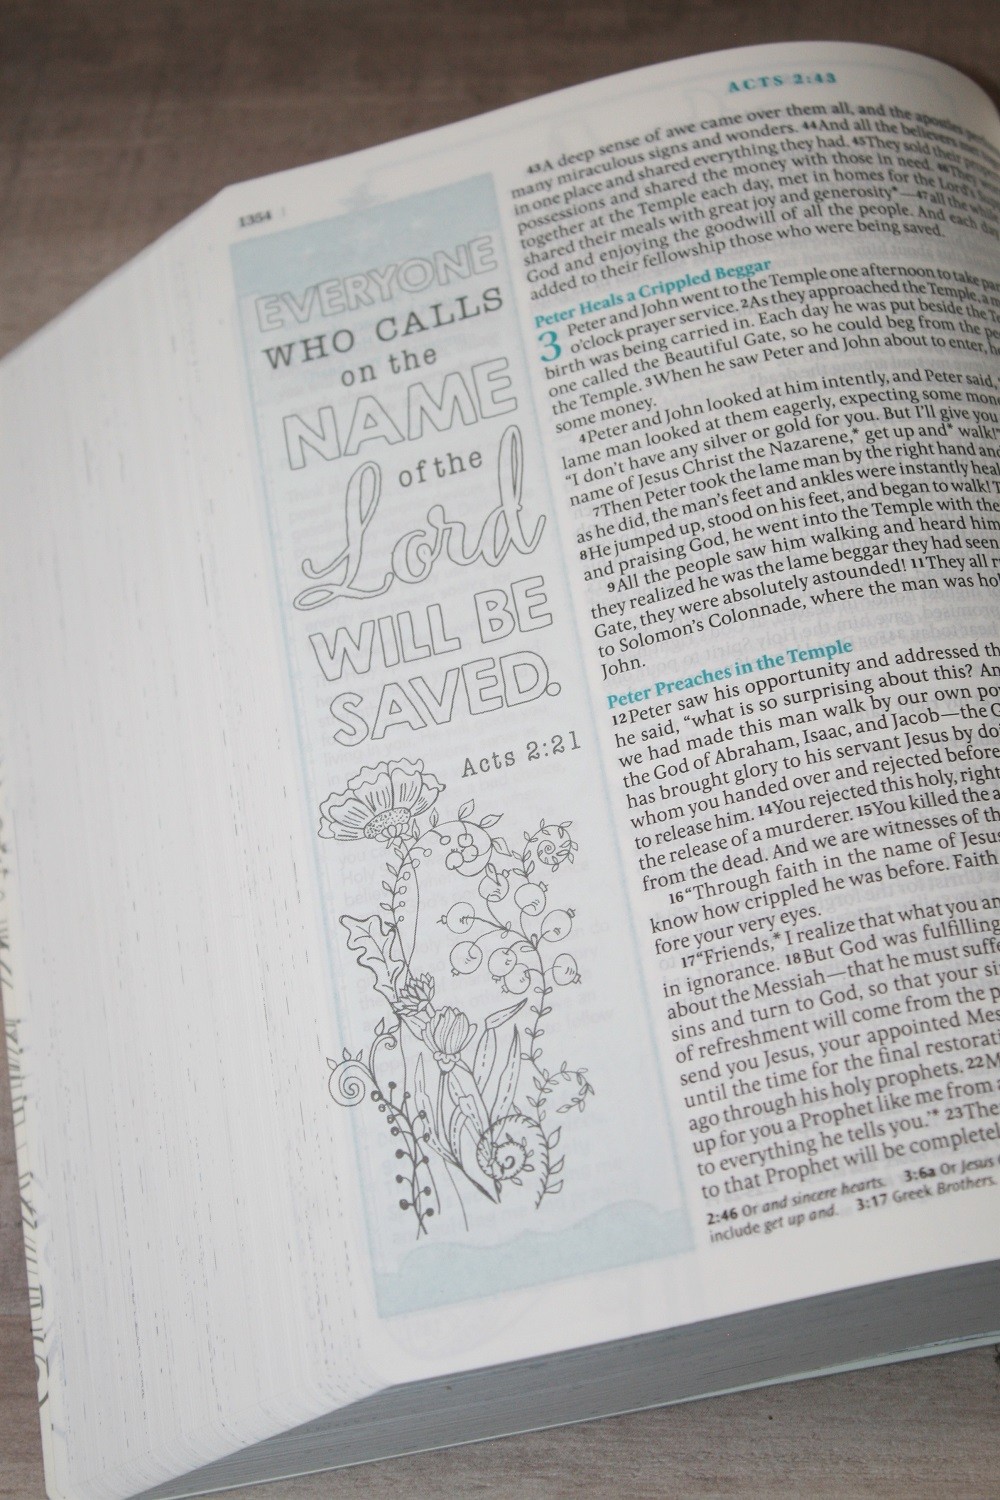 1354
EVERYONE
WHO CALLS
on the
NAME
of the
Lord
WILL BE
SAVED.
Acts 2:21
ACTS 2:43
43A deep sense of awe came over them all, and the apostles
many miraculous signs and wonders. 44And all the believers met
in one place and shared everything they had. 45They sold their
possessions and shared the money with those in need. 46They
together at the Temple each day, met in homes for the Lord's
shared their meals with great joy and generosity*—47all the while
God and enjoying the goodwill of all the people. And each day
added to their fellowship those who were being saved.
Peter Heals a Crippled Beggar
3 Peter and John went to the Temple one afternoon to take part
o'clock prayer service. 2As they approached the Temple, a
birth was being carried in. Each day he was put beside the
one called the Beautiful Gate, so he could beg from the
the Temple. 3When he saw Peter and John about to enter,
some money.
4Peter and John looked at him intently, and Peter said,
lame man looked at them eagerly, expecting some
“I don't have any silver or gold for you. But I'll give you
name of Jesus Christ the Nazarene,* get up and* walk!”
7Then Peter took the lame man by the right hand and
as he did, the man's feet and ankles were instantly
8He jumped up, stood on his feet, and began to walk!
and praising God, he went into the Temple with
9All the people saw him walking and heard him
they realized he was the lame beggar they had seen
Gate, they were absolutely astounded! 11They all
to Solomon's Colonnade, where the man was
John.
Peter Preaches in the Temple
12Peter saw his opportunity and addressed
he said, “what is so surprising about this?
we had made this man walk by our own
the God of Abraham, Isaac, and Jacob—the
has brought glory to his servant Jesus by
whom you handed over and rejected before
to release him. 14You rejected this holy,
the release of a murderer. 15You killed the
from the dead. And we are witnesses of
16“Through faith in the name of Jesus
know how crippled he was before. Faith
fore your very eyes.
17“Friends,* I realize that what you
in ignorance. 18But God was fulfilling
about the Messiah—that he must
sins and turn to God, so that your
of refreshment will come from the
send you Jesus, your appointed
until the time for the final
ago through his holy prophets. 22
up for you a Prophet like me from
to everything he tells you.’* 23
to that Prophet will be
2:46 Or and sincere hearts. 3:6a Or Jesus
include get up and. 3:17 Greek Brothers.